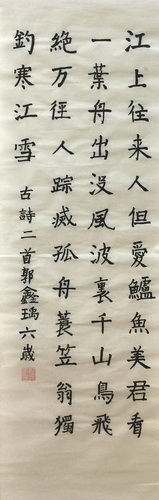 江上往来人但愛鱸魚美君看
一葉舟出没風波裏千山鳥飛
絶万徑人踪滅孤舟蓑笠翁獨
釣寒江雪
古詩二首郭鑫瑀六歲